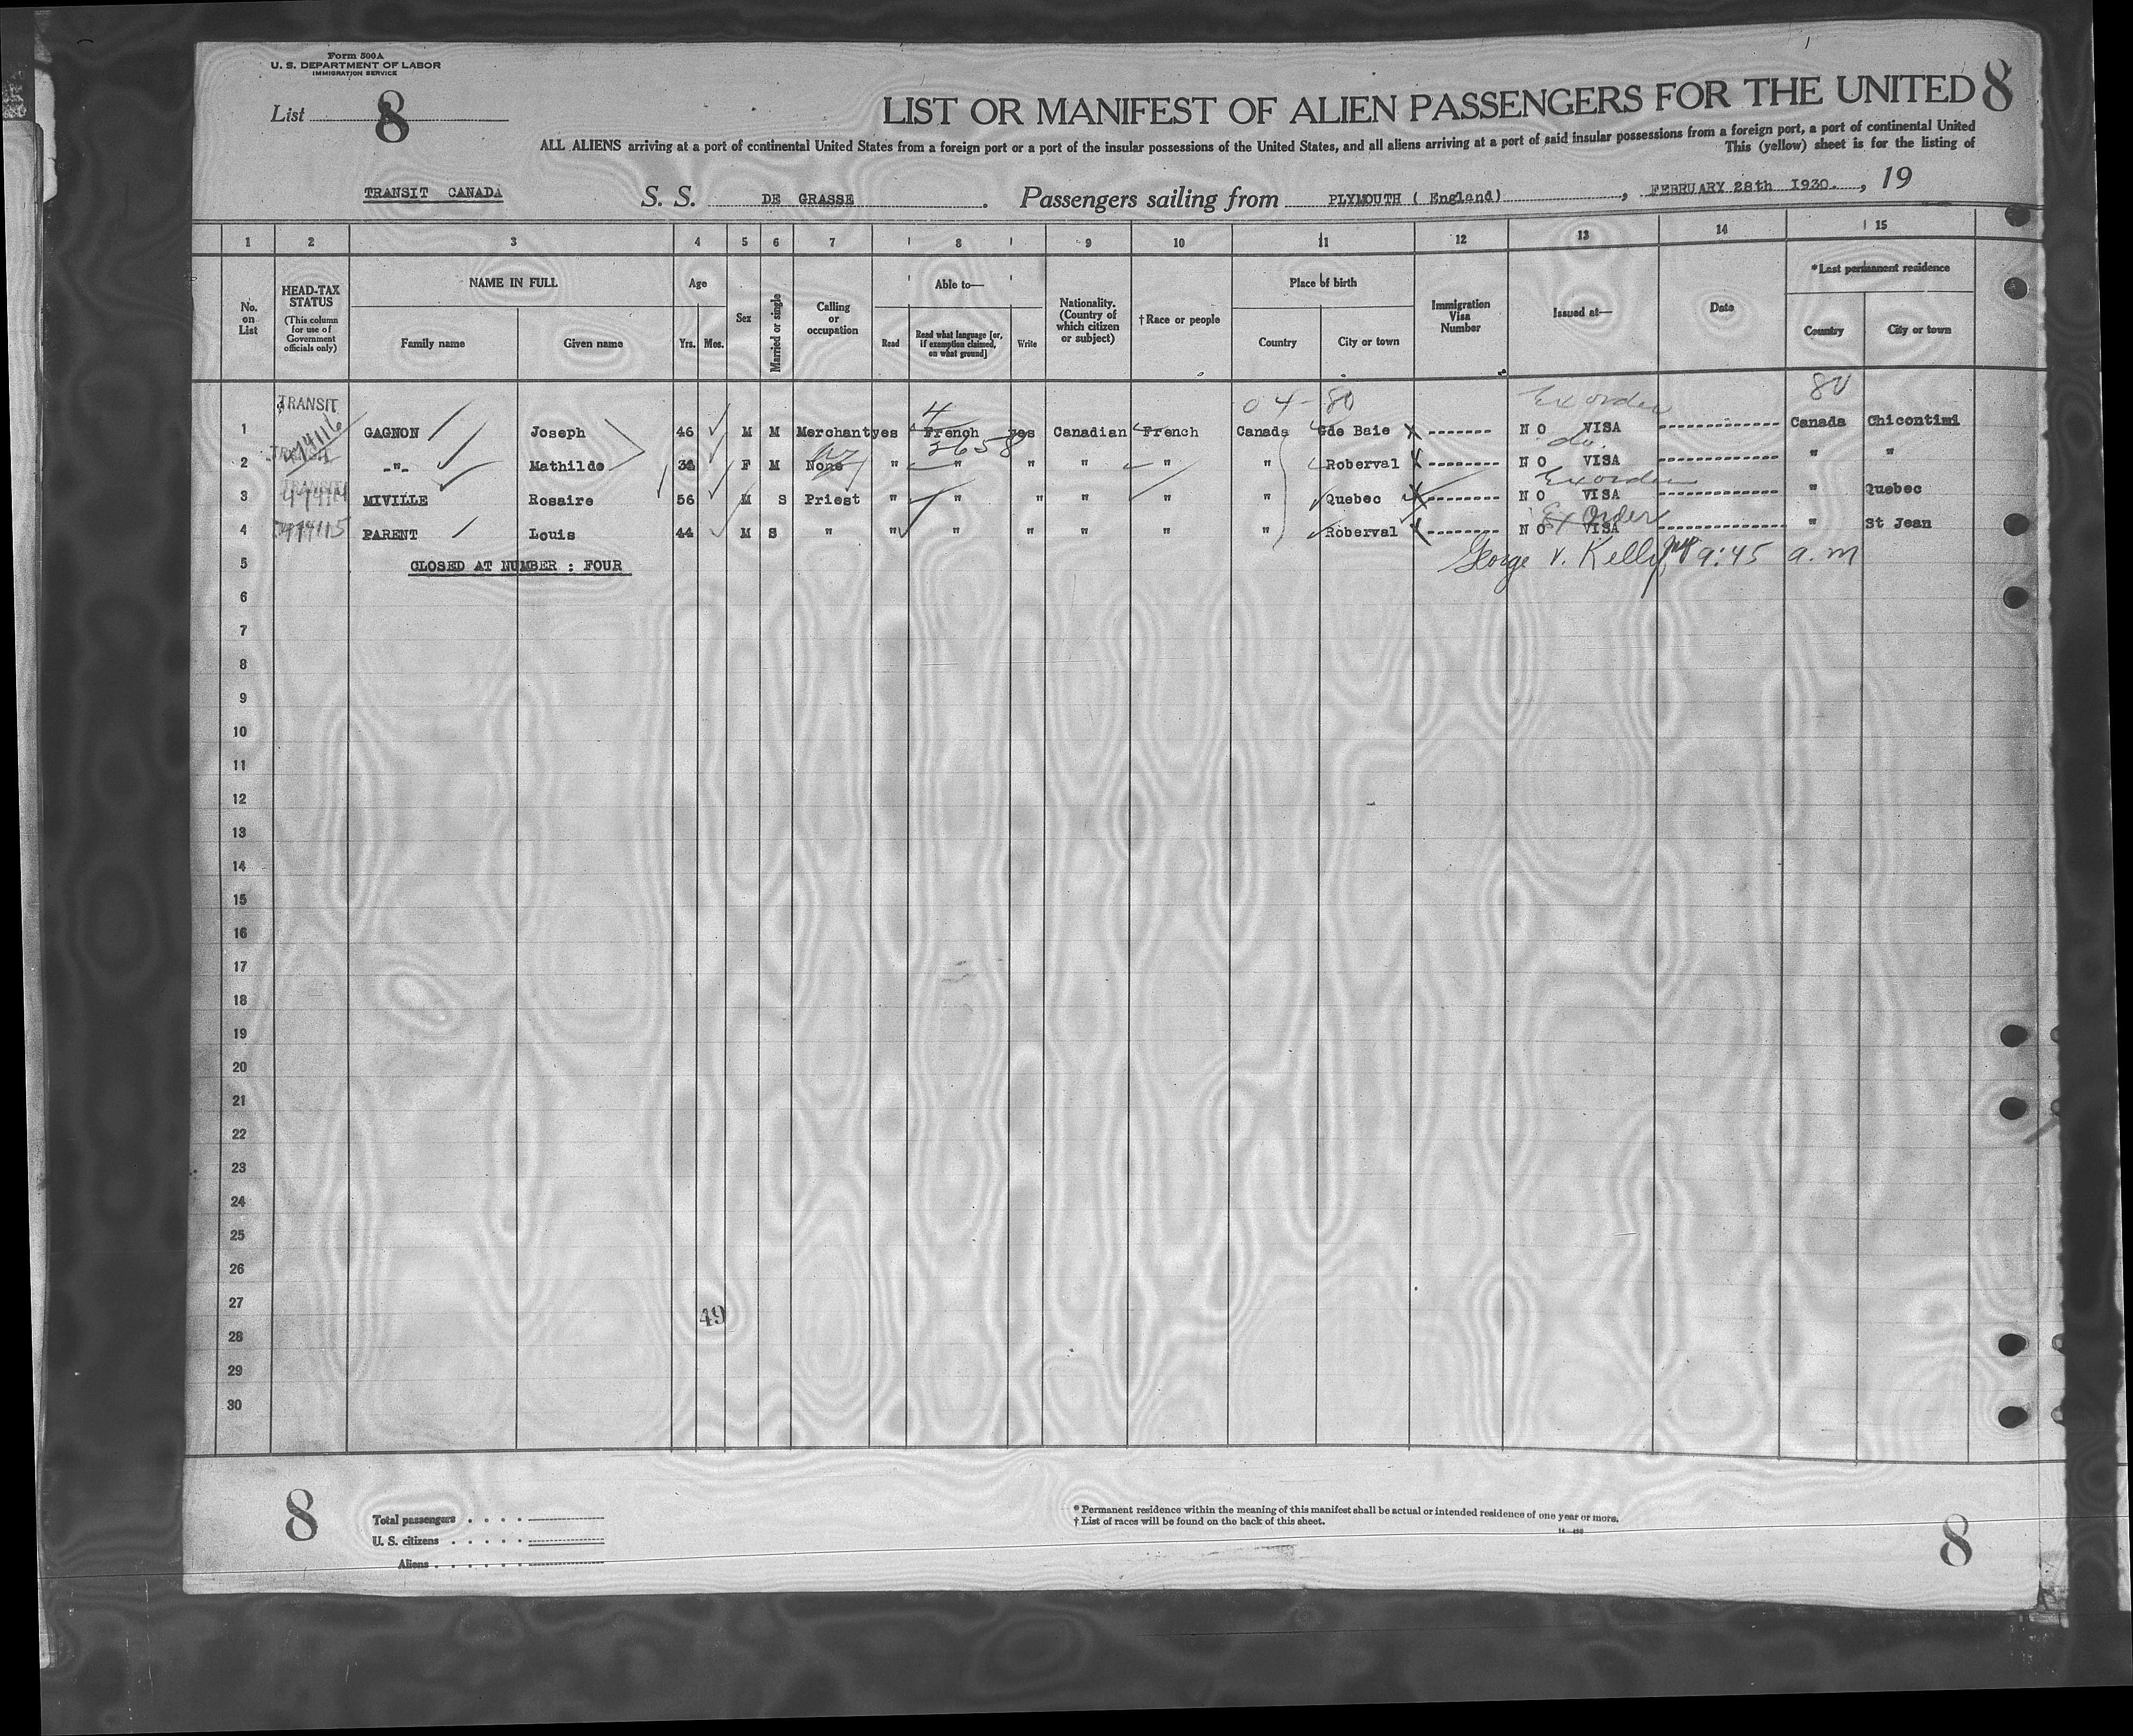 Form 500A
U. S. DEPARTMENT OF LABOR
IMMIGRATION SERVICE
List 8
LIST OR MANIFEST OF ALIEN PASSENGERS FOR THE UNITED 8
ALL ALIENS arriving at a port of continental United States from a foreign port or a port of the insular possessions of the United States, and all aliens arriving at a port of said insular possessions from a foreign port, a port of continental United
This (yellow) sheet is for the listing of
TRANSIT CANADA S. S. DE GRASSE. Passengers sailing from PLYMOUTH ( England), FEBRUARY 28th 1930., 19
1 2 3 4 5 6 7 8 9 10 11 12 13 14 15
No. on List
HEAD-TAX STATUS (This column for use of Government officials only)
NAME IN FULL
Family name Given name
Age
Yrs. Mos.
Sex
Married or single
Calling or occupation
Able to—
Read Read what language [or, if exemption claimed, on what ground] Write
Nationality. (Country of which citizen or subject)
†Race or people
Place of birth
Country City or town
Immigration Visa Number
Issued at—
Date
*Last permanent residence
Country City or town
TRANSIT 4 04-80 Ex order 80
1 GAGNON Joseph 46 M M Merchant yes French yes Canadian French Canada Gde Baie X ------- NO VISA ------- Canada Chicontimi
3658 do.
2 -"- Mathilde F M None " " " " " " Roberval X ------- NO VISA ------- " "
TRANSIT Ex order
3 MIVILLE Rosaire 56 M S Priest " " " " " " Quebec X ------- NO VISA ------- " Quebec
Ex Order
4 PARENT Louis 44 M S " " " " " " " Roberval X ------- NO VISA ------- " St Jean
5 CLOSED AT NUMBER : FOUR George V. Kelly 9:45 a.m
6
7
8
9
10
11
12
13
14
15
16
17
18
19
20
21
22
23
24
25
26
27
49
28
29
30
8
Total passengers . . . .
U. S. citizens . . . . .
Aliens . . . . . .
* Permanent residence within the meaning of this manifest shall be actual or intended residence of one year or more.
† List of races will be found on the back of this sheet.
8